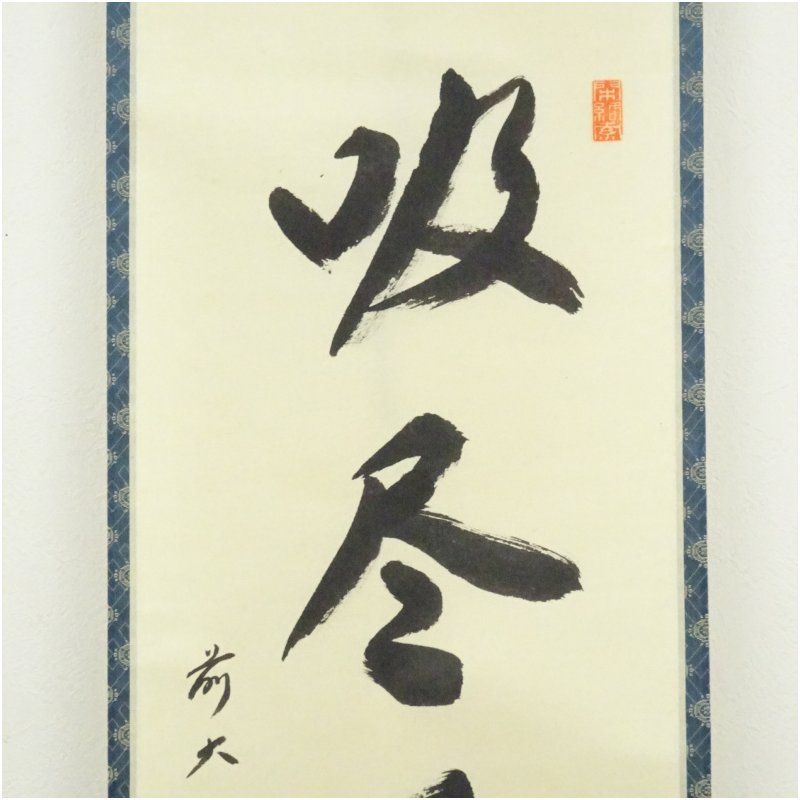 吸尽
前大